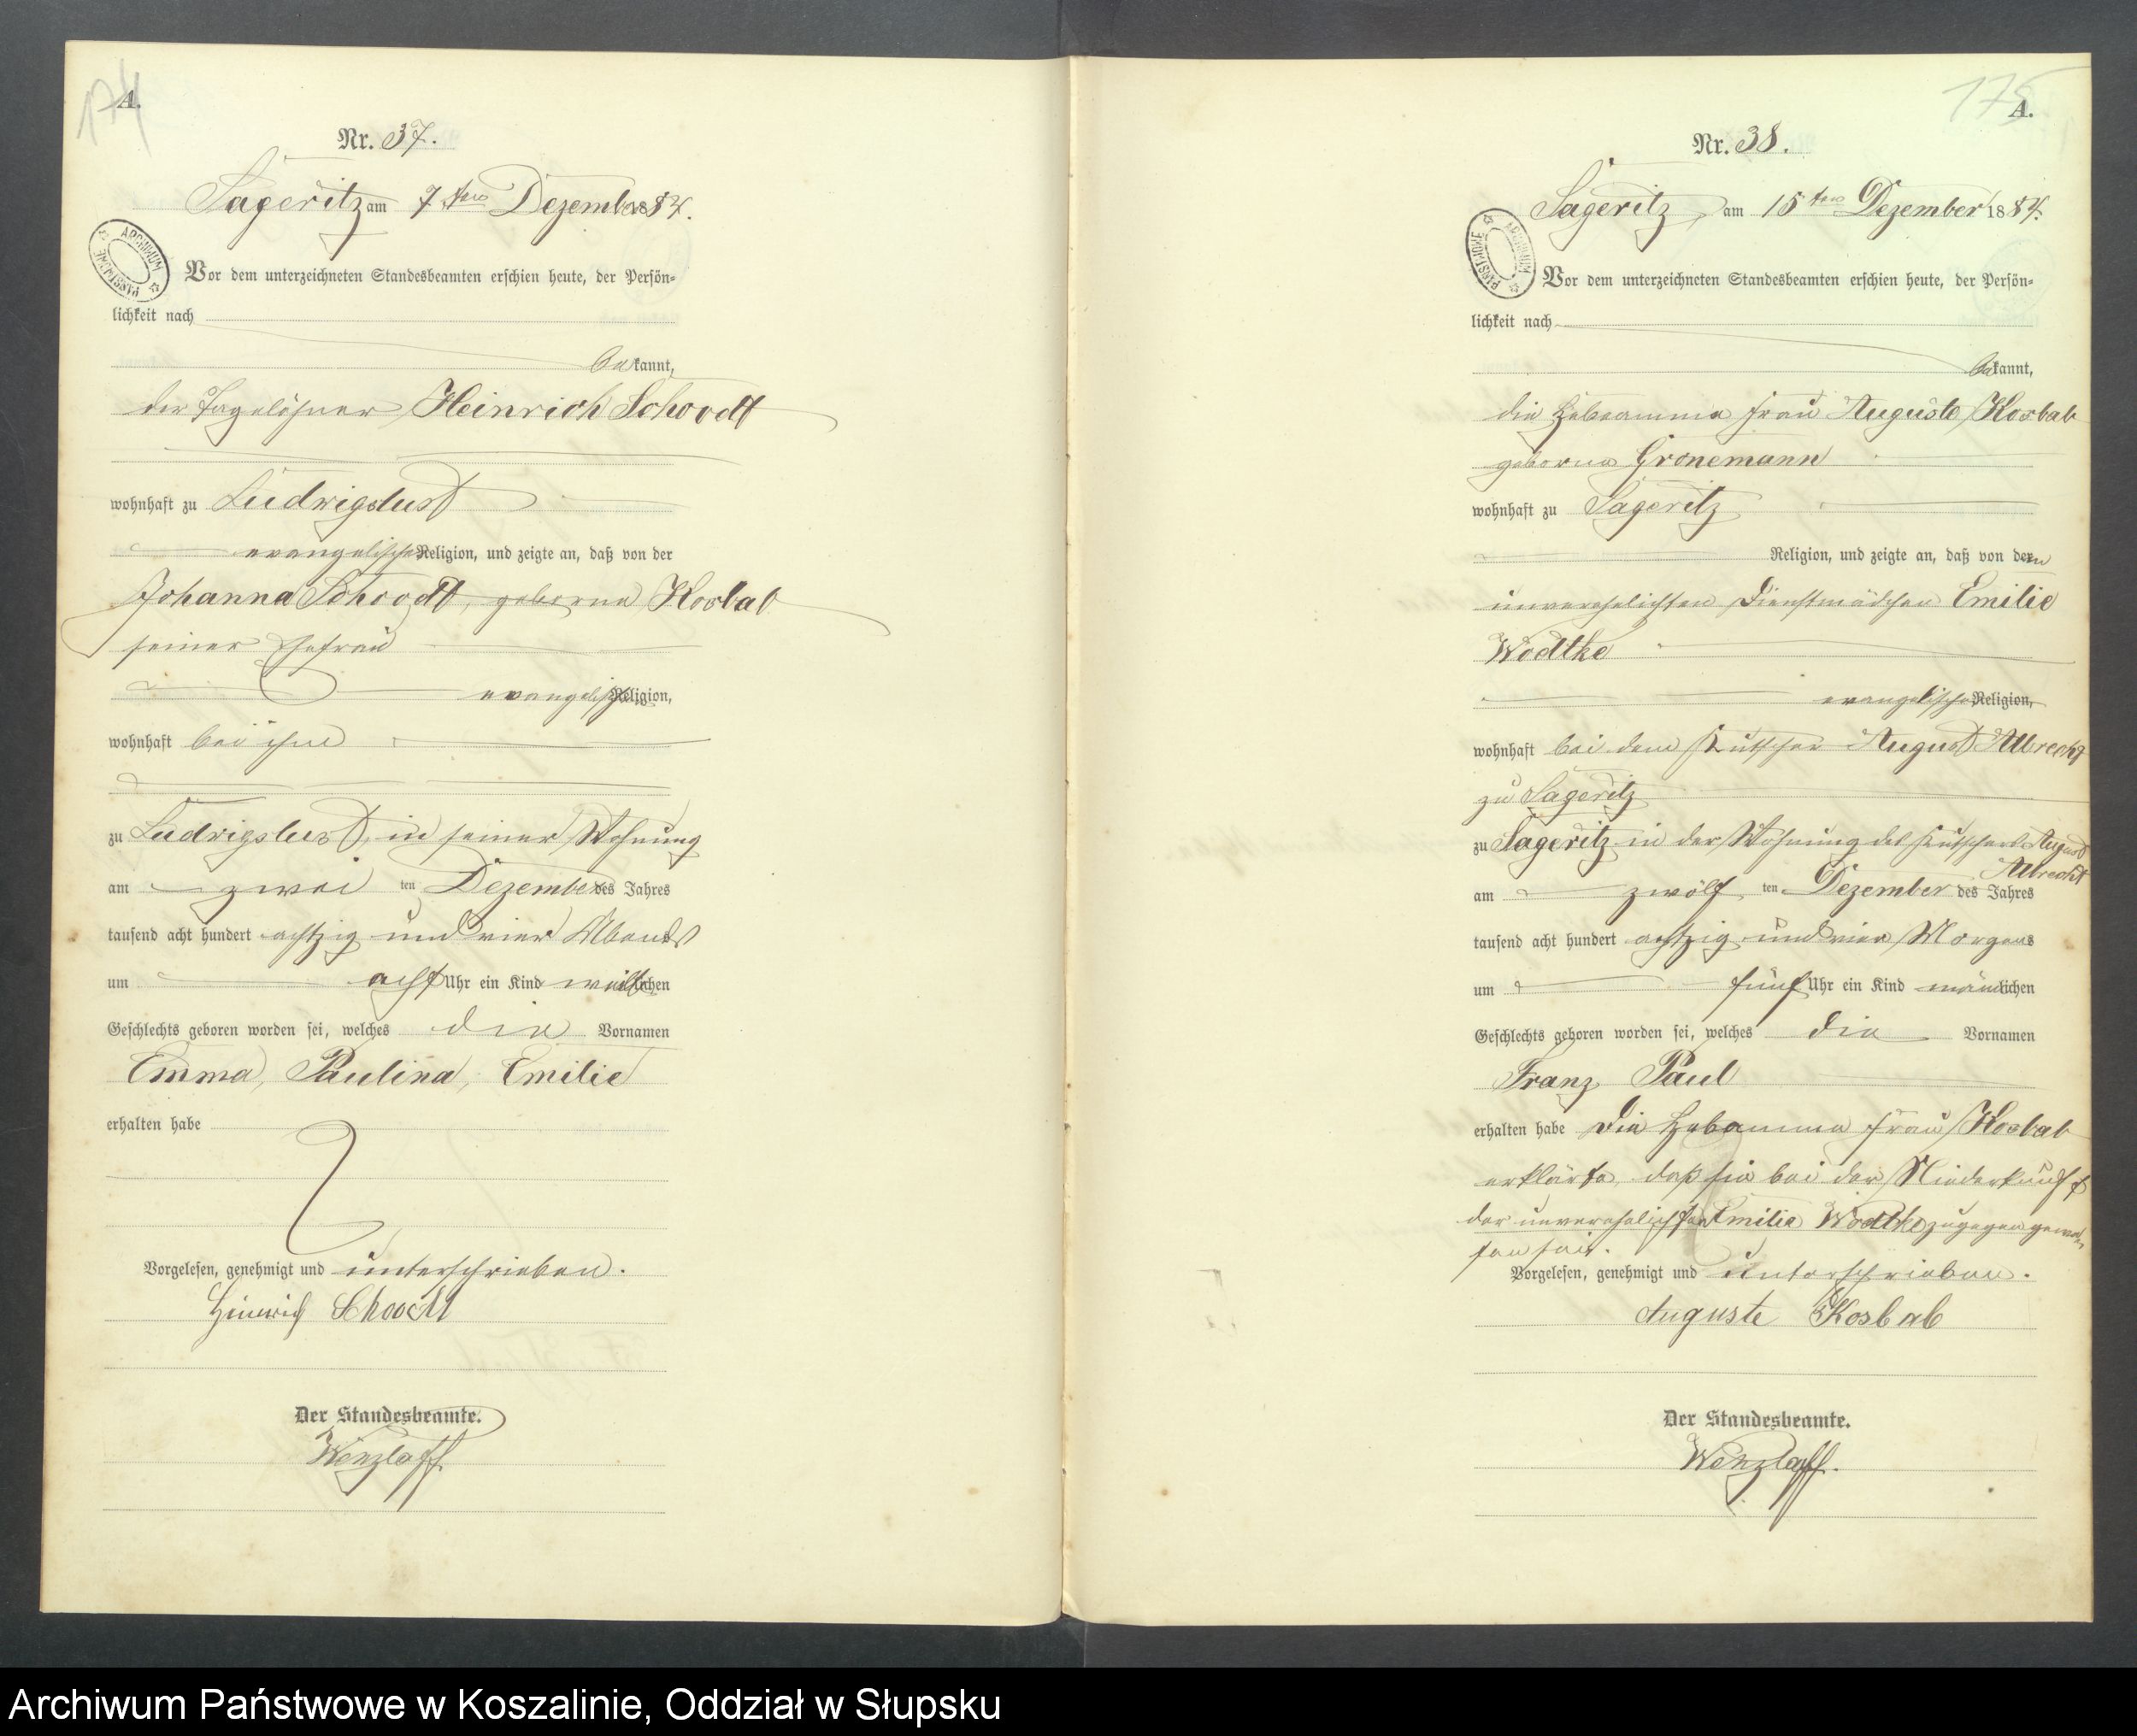 174
A.
Nr. 37.
Sageritz am 7ten Dezember 1884.
ARCHIWUM PAŃSTWOWE
Vor dem unterzeichneten Standesbeamten erschien heute, der Persön-
lichkeit nach
bekannt,
der Tagelöhner Heinrich Schoodt
wohnhaft zu Ludwigslust
evangelischer Religion, und zeigte an, daß von der
Johanna Schoodt, geborne Kosbab
seiner Ehefrau
evangelischer Religion,
wohnhaft bei ihm
zu Ludwigslust, in seiner Wohnung
am zwei ten Dezember des Jahres
tausend acht hundert achtzig und vier Abends
um acht Uhr ein Kind weiblichen
Geschlechts geboren worden sei, welches die Vornamen
Emma, Paulina, Emilie
erhalten habe
Vorgelesen, genehmigt und unterschrieben.
Heinrich Schoodt
Der Standesbeamte.
Wenzlaff
175
A.
Nr. 38.
Sageritz, am 15ten Dezember 1884.
ARCHIWUM PAŃSTWOWE
Vor dem unterzeichneten Standesbeamten erschien heute, der Persön-
lichkeit nach
bekannt,
die Hebeamme Frau Auguste Kosbab
geborne Gronemann
wohnhaft zu Sageritz
Religion, und zeigte an, daß von dem
unverehelichten Dienstmädchen Emilie
Wodtke
evangelischer Religion,
wohnhaft bei dem Kutscher August Albrecht
zu Sageritz
zu Sageritz in der Wohnung des Kutschers August
Albrecht
am zwölf ten Dezember des Jahres
tausend acht hundert achtzig und vier Morgens
um fünf Uhr ein Kind männlichen
Geschlechts geboren worden sei, welches die Vornamen
Franz Paul
erhalten habe Die Hebamme Frau Kosbab
erklärte, daß sie bei der Niederkunft
der unverehelichten Emilie Wodtke zugegen gewe-
sen sei.
Vorgelesen, genehmigt und unterschrieben.
Auguste Kosbab
Der Standesbeamte.
Wenzlaff.
Archiwum Państwowe w Koszalinie, Oddział w Słupsku